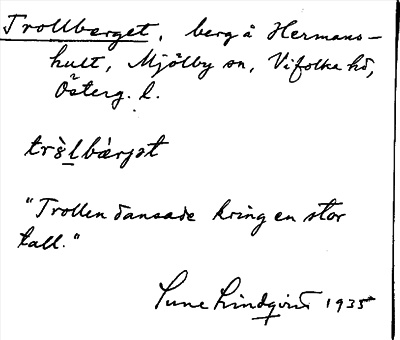 Trollberget, berg å Hermans-
hult, Mjölby sn, Vifolka hd,
Österg. l.
trò̤lbàrjət
"Trollen dansade kring en stor
tall."
Sune Lindqvist 1935